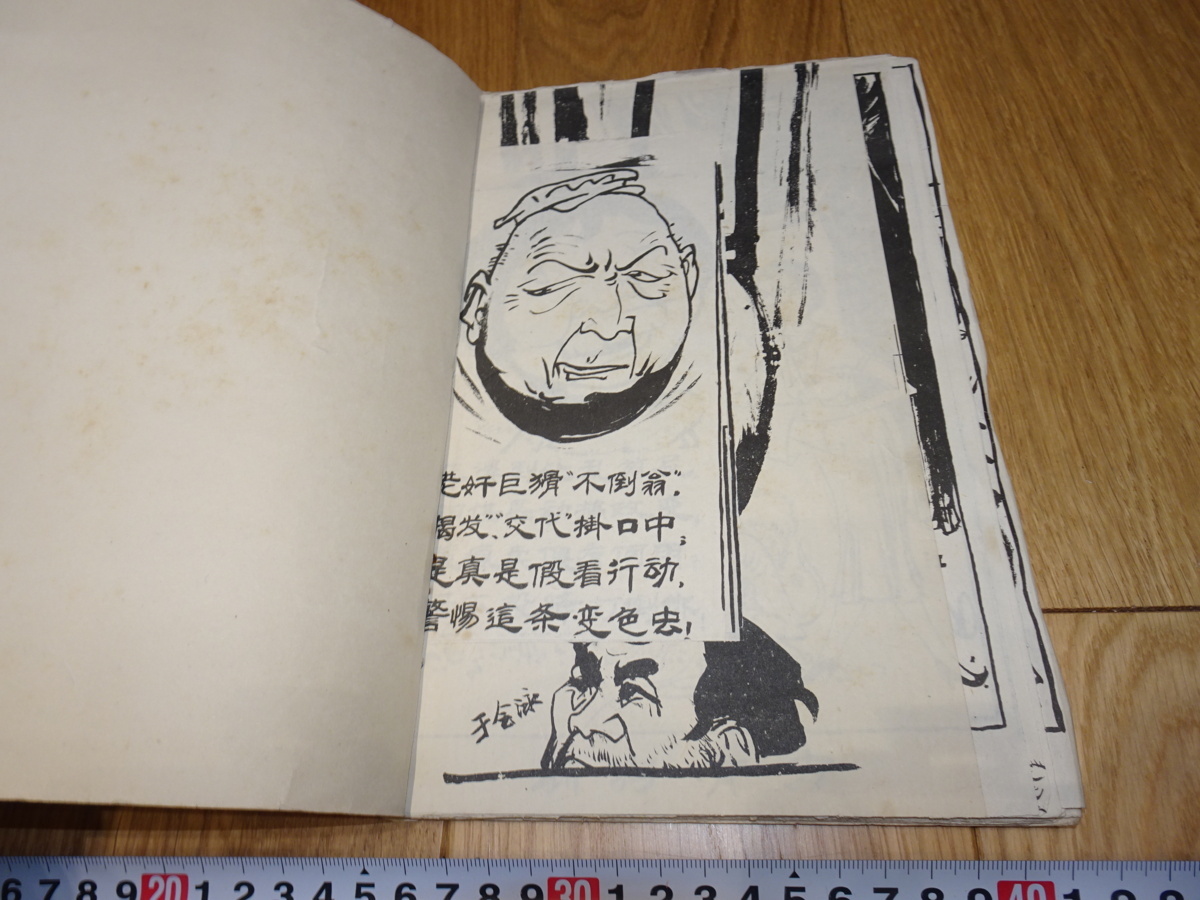 老奸巨猾“不倒翁”.
揭发”、“交代”掛口中;
是真是假看行动,
警惕這条变色虫!
于会泳
6 7 8 9 20 1 2 3 4 5 6 7 8 9 30 1 2 3 4 5 6 7 8 9 40 1 2